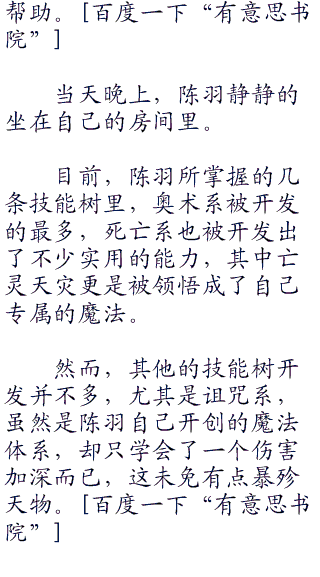 帮助。[百度一下“有意思书
院”]
当天晚上，陈羽静静的
坐在自己的房间里。
目前，陈羽所掌握的几
条技能树里，奥术系被开发
的最多，死亡系也被开发出
了不少实用的能力，其中亡
灵天灾更是被领悟成了自己
专属的魔法。
然而，其他的技能树开
发并不多，尤其是诅咒系，
虽然是陈羽自己开创的魔法
体系，却只学会了一个伤害
加深而已，这未免有点暴殄
天物。[百度一下“有意思书
院”]